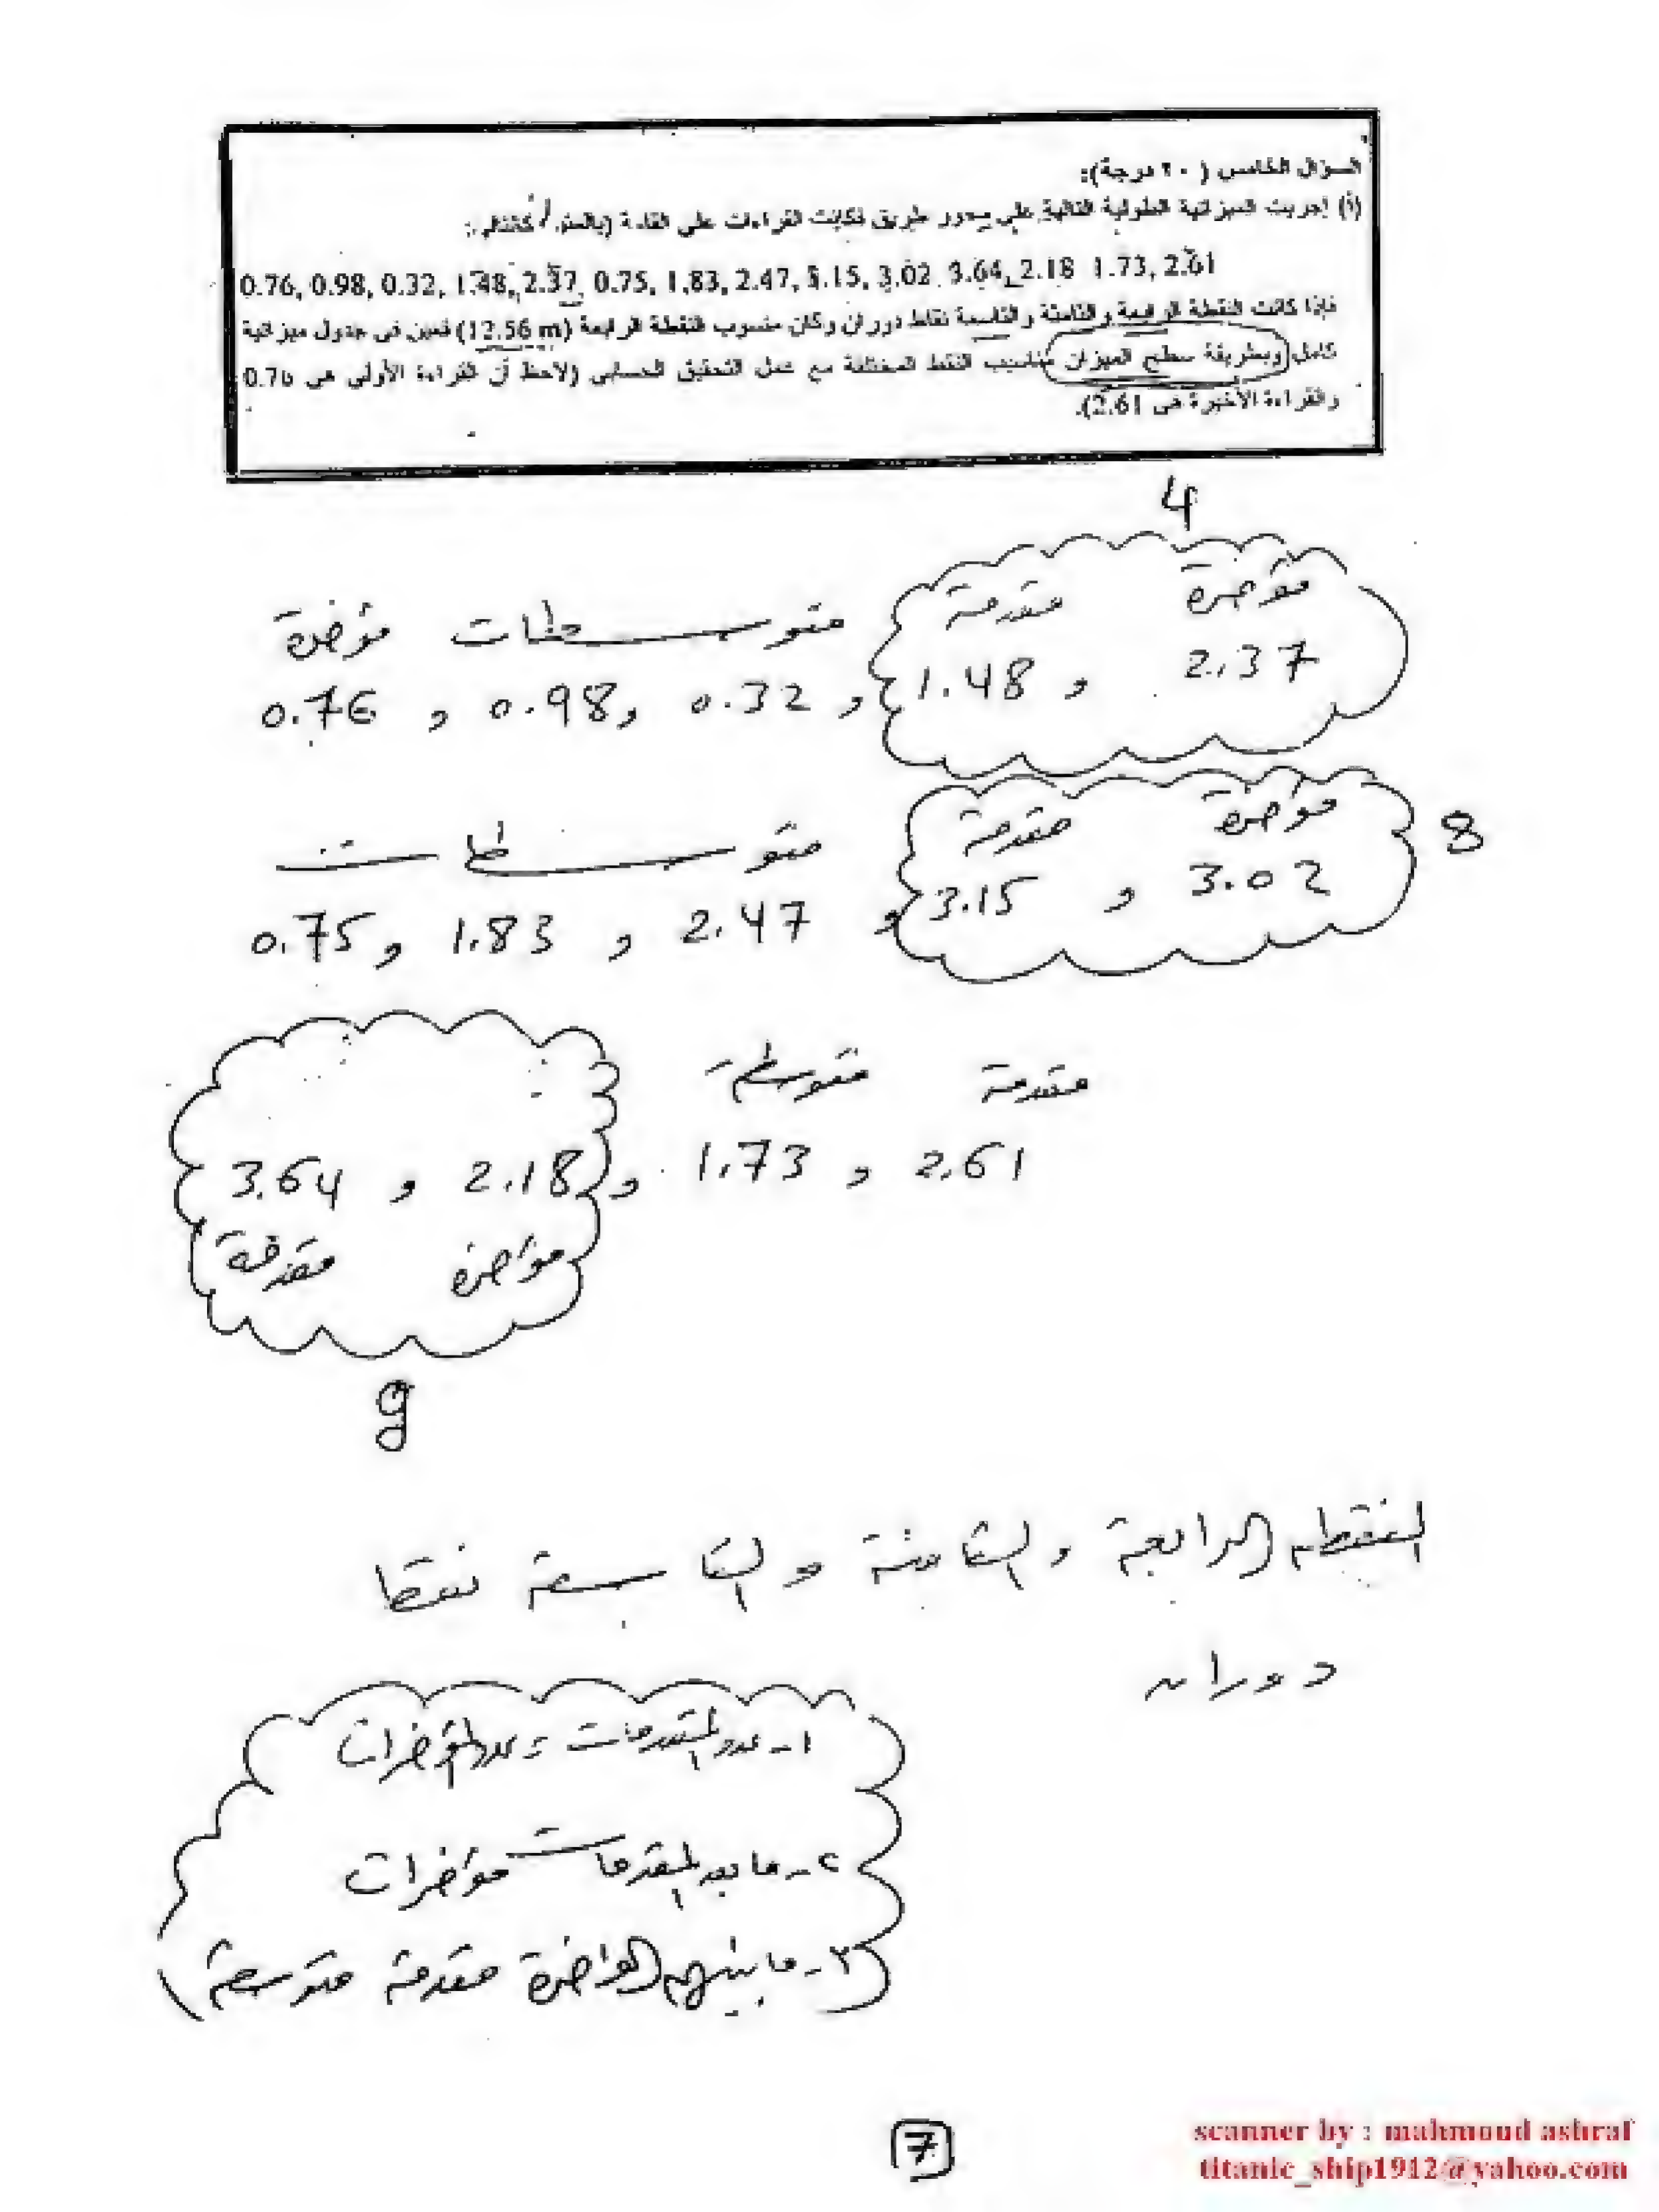 السؤال الخامس ( ٢٠ درجة):
(أ) اجريت الميزانية الطولية التالية على محور طريق فكانت القراءات على القامة (بالمتر) كالتالي:
0.76, 0.98, 0.32, 1.48, 2.37, 0.75, 1.83, 2.47, 3.15, 3.02, 3.64, 2.18 1.73, 2.61
فإذا كانت النقطة الرابعة والثامنة والتاسعة نقاط دوران وكان منسوب النقطة الرابعة (12.56 m) فعين في جدول ميزانية
كامل وبطريقة سطح الميزان مناسيب النقط المختلفة مع عمل التحقيق الحسابي (لاحظ أن القراءة الأولى هي 0.76
والقراءة الأخيرة هي 2.61).
4
مؤخرة متوسطات مقدمة مؤخرة
0.76 , 0.98, 0.32 , 1.48 , 2.37
متوسطات مقدمة مؤخرة
0.75, 1.83 , 2.47 , 3.15 , 3.02
8
متوسطة مقدمة
3.64 , 2.18 , 1.73 , 2.61
مقدمة مؤخرة
9
النقطه الرابعة والثامنة والتاسعة نقط
دوران
١- عدد المقدمات = عدد المؤخرات
٢- ما بعد المقدمات مؤخرات
٣- ما بينهم المؤخرة مقدمة متوسطة
7
scanner by : mahmoud ashraf
titanic_ship1912@yahoo.com